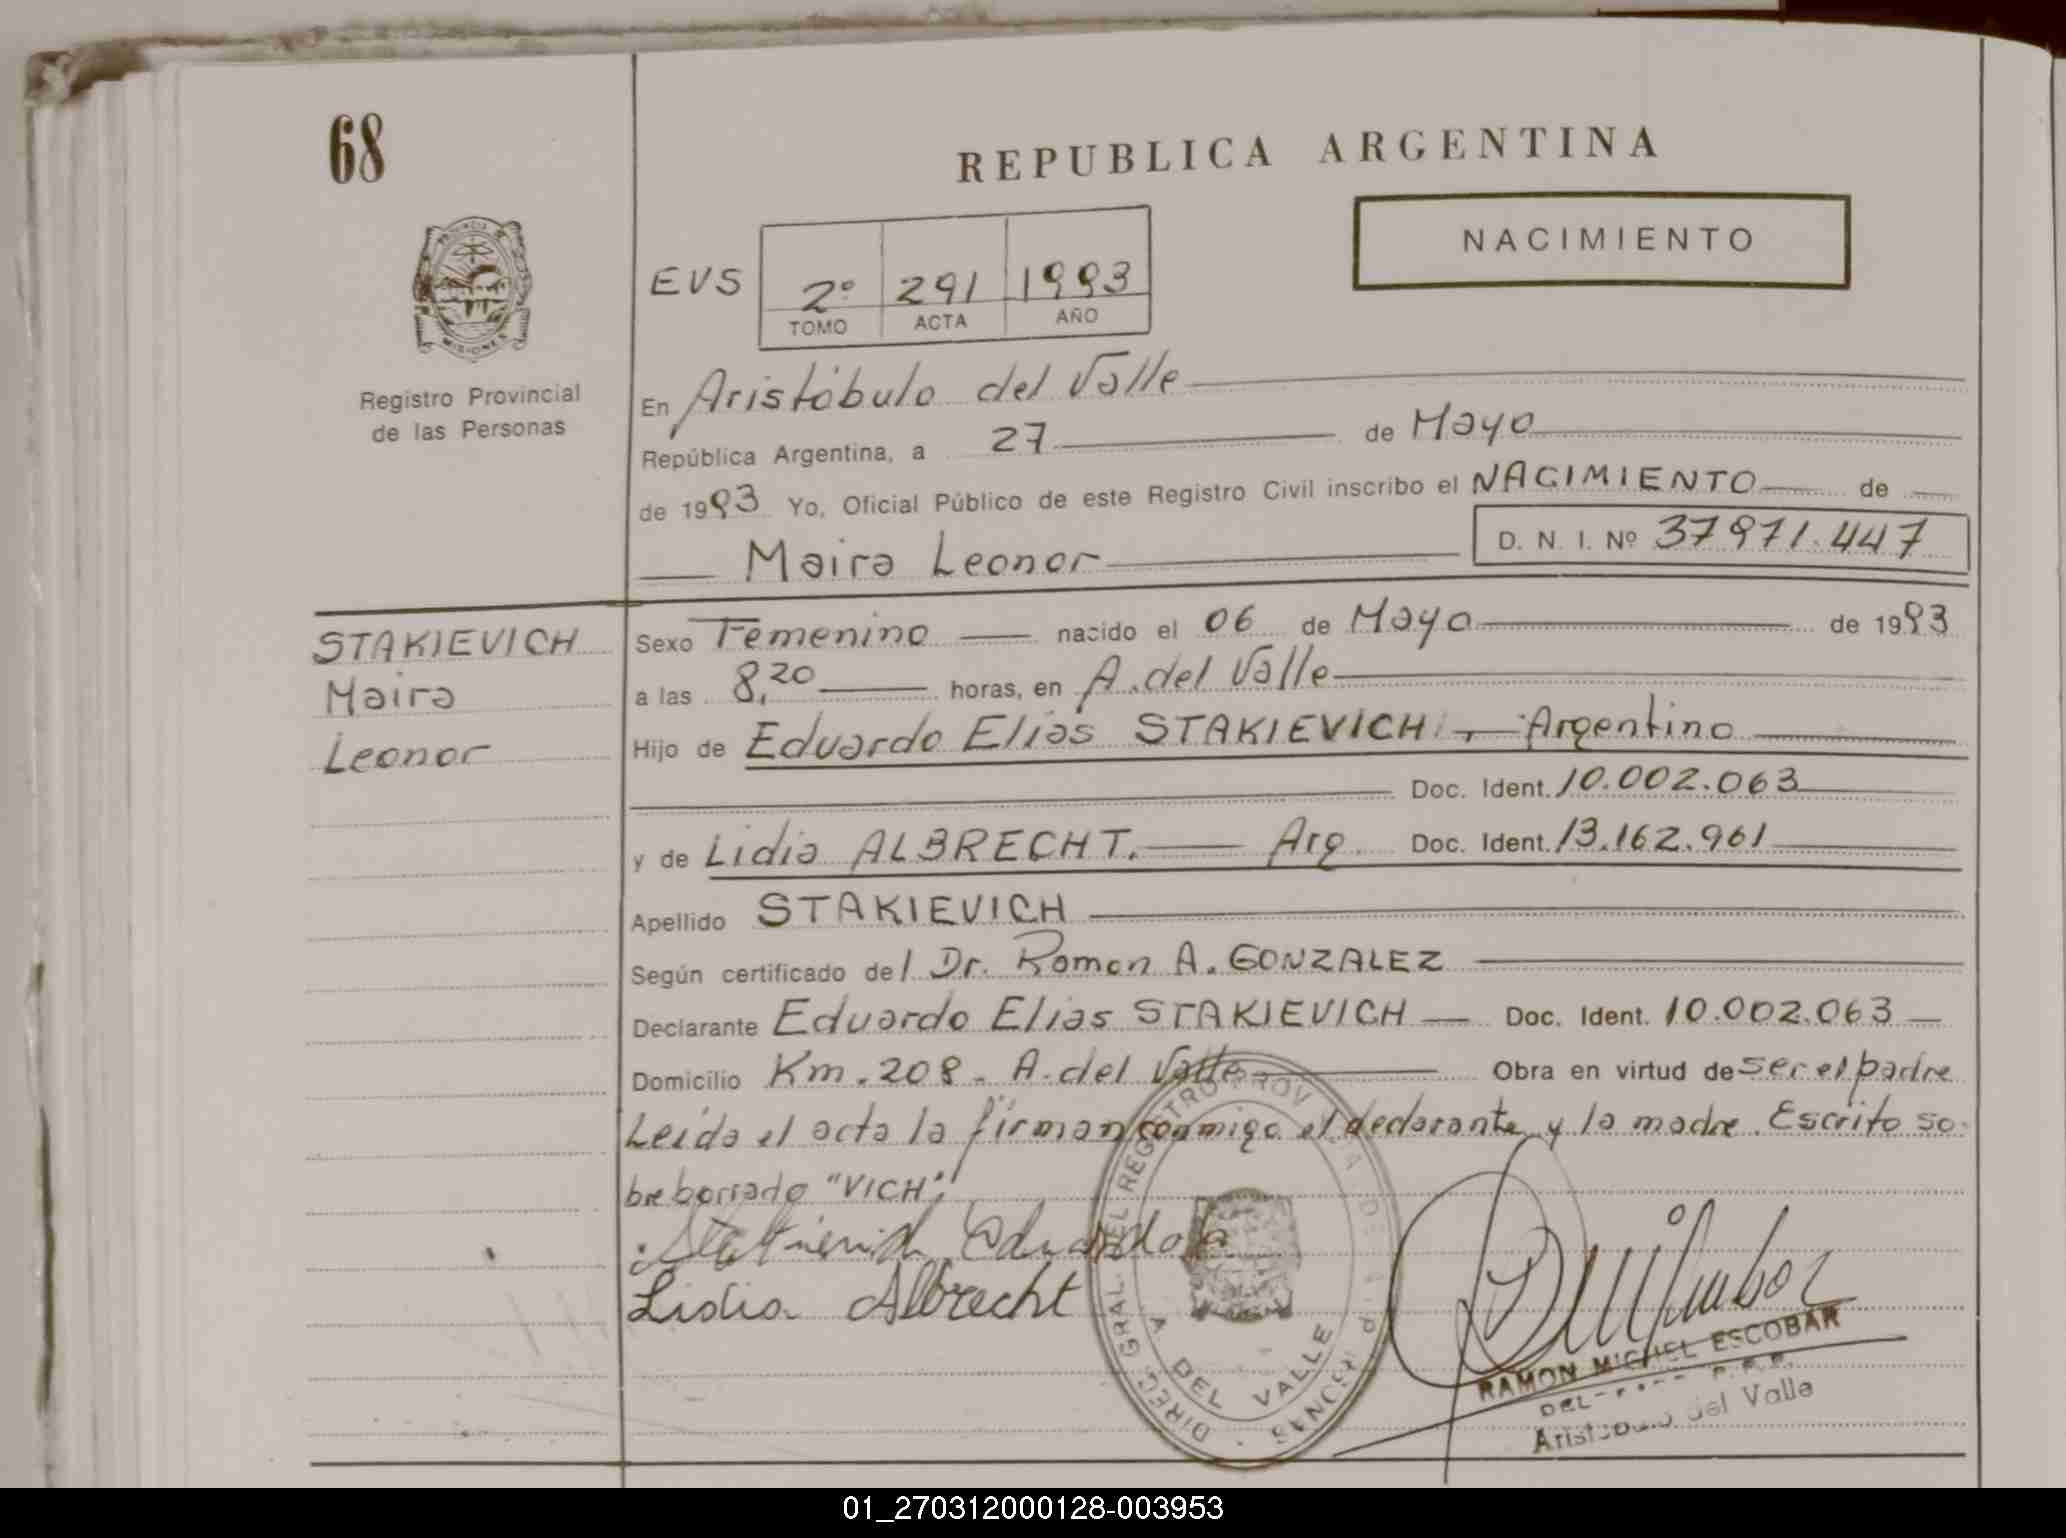 68
REPUBLICA ARGENTINA
NACIMIENTO
EVS 2º 291 1993
TOMO ACTA AÑO
PROVINCIA DE MISIONES
Registro Provincial
de las Personas
En Aristóbulo del Valle
República Argentina, a 27 de Mayo
de 1993 Yo, Oficial Público de este Registro Civil inscribo el NACIMIENTO de
Maira Leonor D. N. I. Nº 37971.447
STAKIEVICH
Maira
Leonor
Sexo Femenino nacido el 06 de Mayo de 1993
a las 8,20 horas, en A. del Valle
Hijo de Eduardo Elias STAKIEVICH, Argentino
Doc. Ident. 10.002.063
y de Lidia ALBRECHT. Arg. Doc. Ident. 13.162.961
Apellido STAKIEVICH
Según certificado del Dr. Ramon A. GONZALEZ
Declarante Eduardo Elias STAKIEVICH Doc. Ident. 10.002.063
Domicilio Km. 208. A. del Valle Obra en virtud de ser el padre
Leida el acta la firman conmigo el declarante y la madre. Escrito so-
bre borrado "VICH".
Stakievich Eduardo
Lidia Albrecht
DIREC. GRAL. DEL REGISTRO PROV. DE LAS P. MISIONES
A DEL VALLE
RAMON MIGUEL ESCOBAR
Aristobulo del Valle
01_270312000128-003953